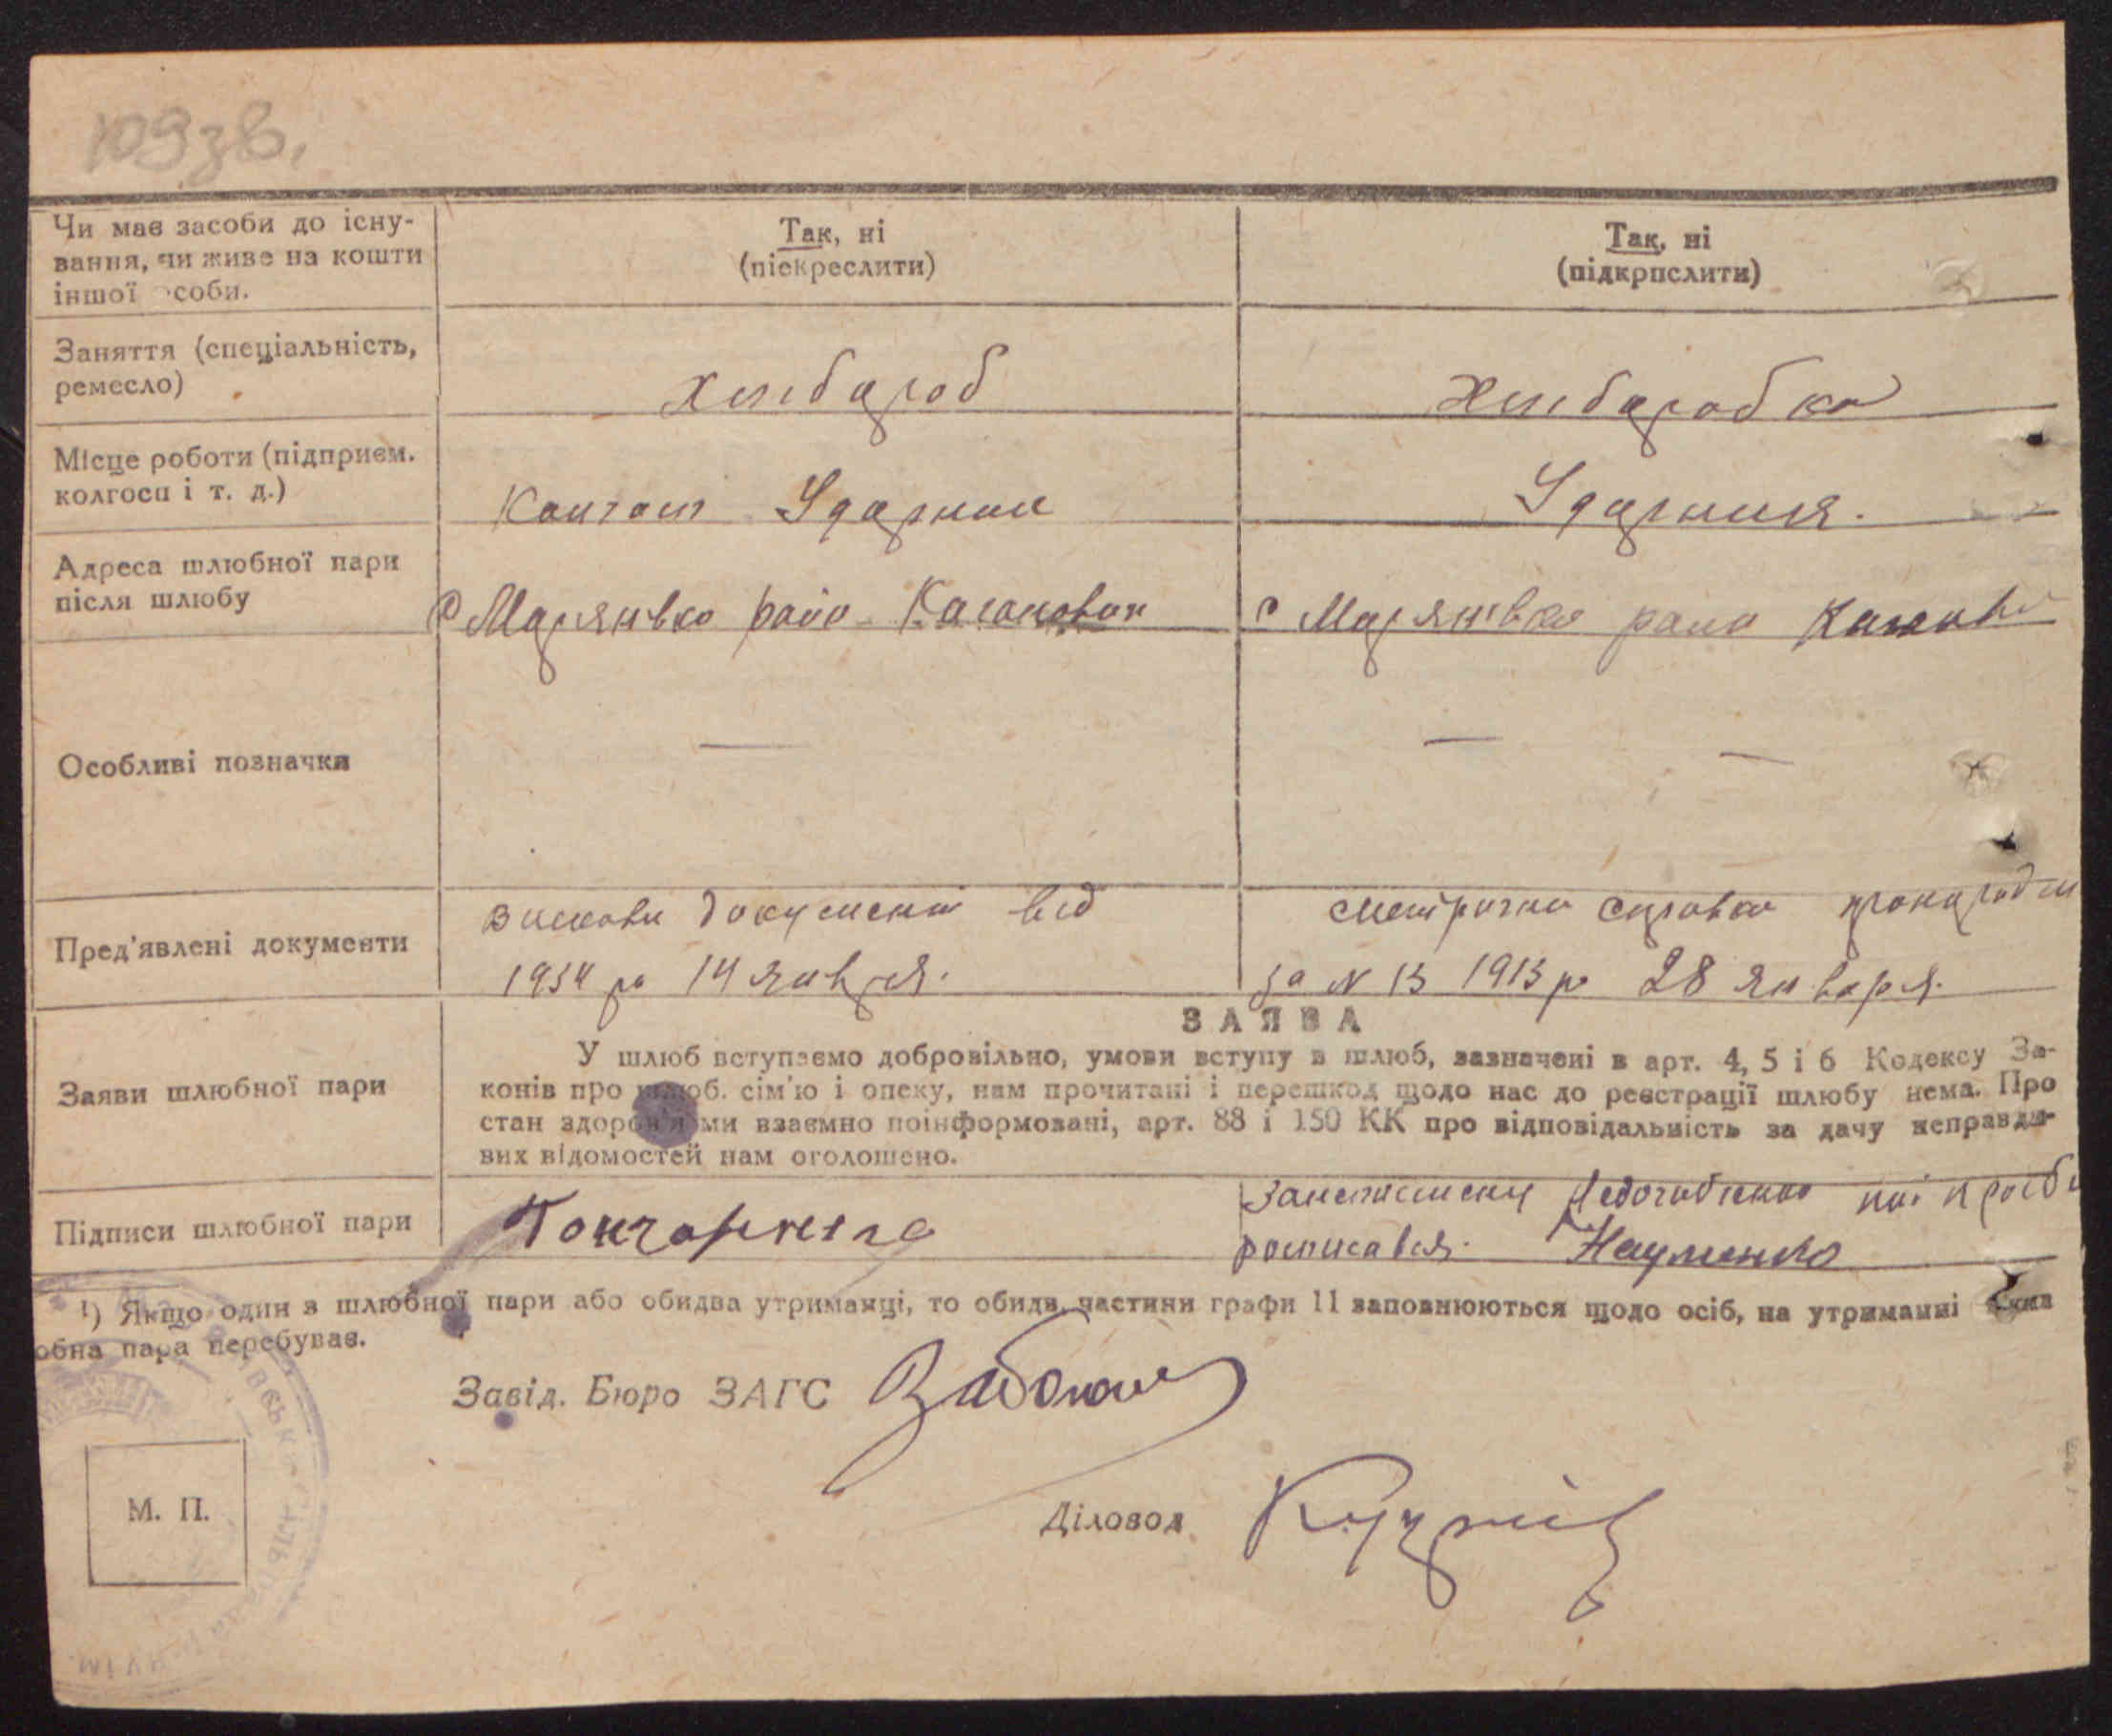 109зв.
Чи має засоби до існу-
вання, чи живе на кошти
іншої особи.
Так, ні
(піекреслити)
Так, ні
(підкрпслити)
Заняття (спеціальність,
ремесло)
хлібароб
хлібаробка
Місце роботи (підприєм.
колгосп і т. д.)
Ударник
Ударниця.
Адреса шлюбної пари
після шлюбу
с Марянівка райо Каганович
с Марянівка
Особливі позначки
— — —
Пред'явлені документи
документ від
1934 ро 14 января.
метрична справка
за N 13 1913 ро 28 января.
ЗАЯВА
Заяви шлюбної пари
У шлюб вступаємо добровільно, умови вступу в шлюб, зазначені в арт. 4, 5 і 6 Кодексу За-
конів про шлюб. сім'ю і опеку, нам прочитані і перешкод щодо нас до реєстрації шлюбу нема. Про
стан здоров'я ми взаємно поінформовані, арт. 88 і 150 КК про відповідальність за дачу неправди-
вих відомостей нам оголошено.
Підписи шлюбної пари
росписався. Науменко
¹) Якщо один з шлюбної пари або обидва утриманці, то обидв. частини графи 11 заповнюються щодо осіб, на утриманні
обна пара перебуває.
Завід. Бюро ЗАГС
Діловод
М. П.